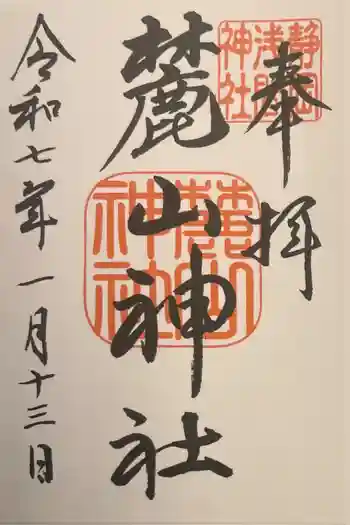 奉拝
静岡
浅間
神社
麓山神社
麓山
神社
令和七年一月十三日